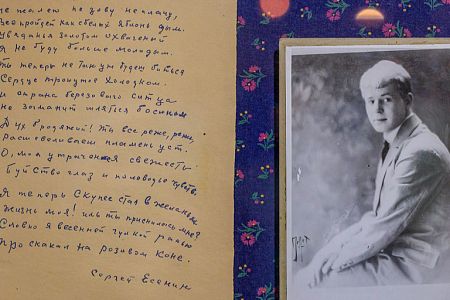 Не жалею не зову не плачу,
Всё пройдет как с белых яблонь дым.
Увяданья золотом охваченый
Я не буду больше молодым.
Ты теперь не так уж будешь биться
Сердце тронутое холодком.
И страна березового ситца
Не заманит шляться босиком
Дух бродяжий! ты все реже, реже
Расшевеливаешь пламень уст.
О, моя утраченная свежесть
Буйство глаз и половодье чувств,
Я теперь скупее стал в желаньях
Жизнь моя! иль ты приснилась мне?
Словно я весенней гулкой ранью
Проскакал на розовом коне.
Сергей Есенин